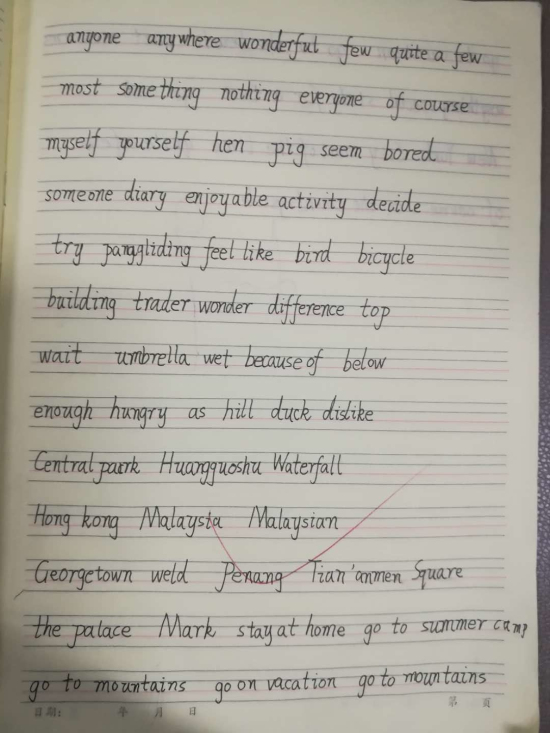 anyone anywhere wonderful few quite a few
most something nothing everyone of course
myself yourself hen pig seem bored
someone diary enjoyable activity decide
try paragliding feel like bird bicycle
building trader wonder difference top
wait umbrella wet because of below
enough hungry as hill duck dislike
Central park Huangguoshu Waterfall
Hong kong Malaysia Malaysian
Georgetown weld Penang Tian'anmen Square
the palace Mark stay at home go to summer camp
go to mountains go on vacation go to mountains
日期: 年 月 日 第 页